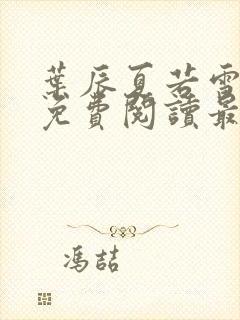 葉辰夏若雪
免費閱讀最
馮喆